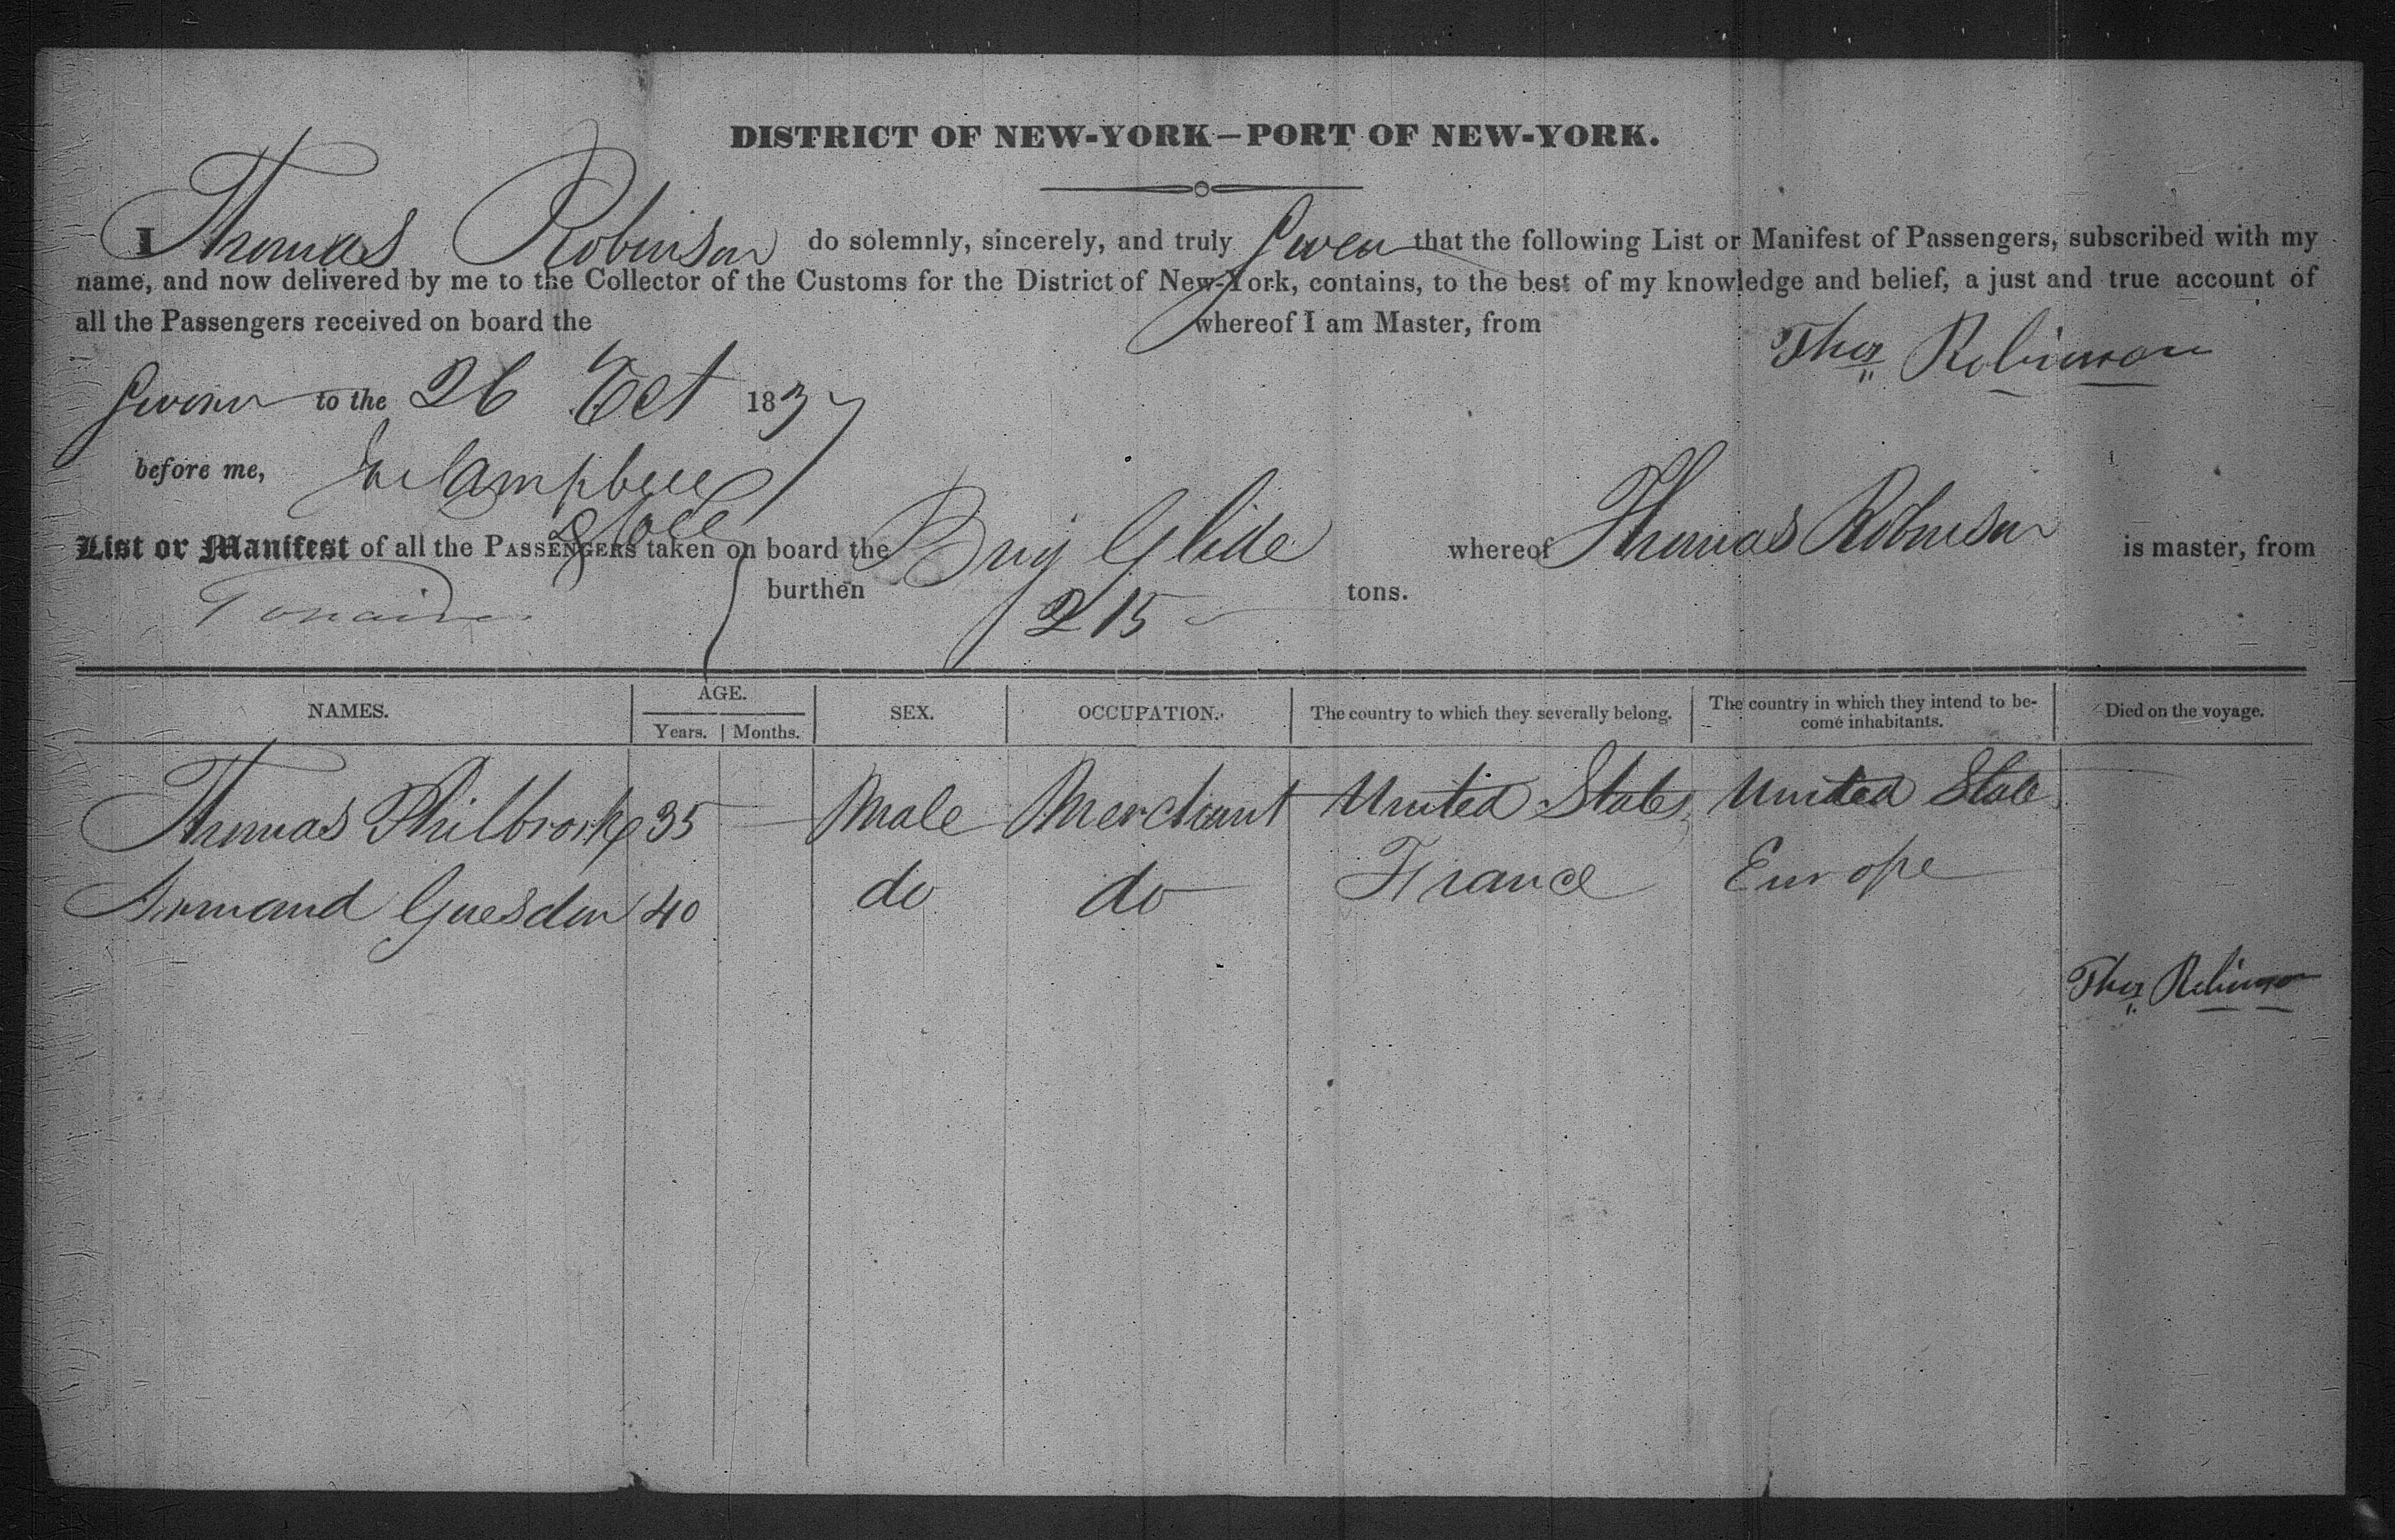 DISTRICT OF NEW-YORK—PORT OF NEW-YORK.
I Thomas Robinson do solemnly, sincerely, and truly Swear that the following List or Manifest of Passengers, subscribed with my
name, and now delivered by me to the Collector of the Customs for the District of New-York, contains, to the best of my knowledge and belief, a just and true account of
all the Passengers received on board the whereof I am Master, from
Thos Robinson
Sworn to the 26 Oct 1837
before me,
List or Manifest of all the PASSENGERS taken on board the Brig Glide whereof Thomas Robinson is master, from
burthen 215 tons.
NAMES. AGE. SEX. OCCUPATION. The country to which they severally belong. The country in which they intend to be-
come inhabitants. Died on the voyage.
Years. Months.
Thomas Philbrook 35 Male Merchant United States United States
Armand Guesdon 40 do do France Europe
Thos Robinson